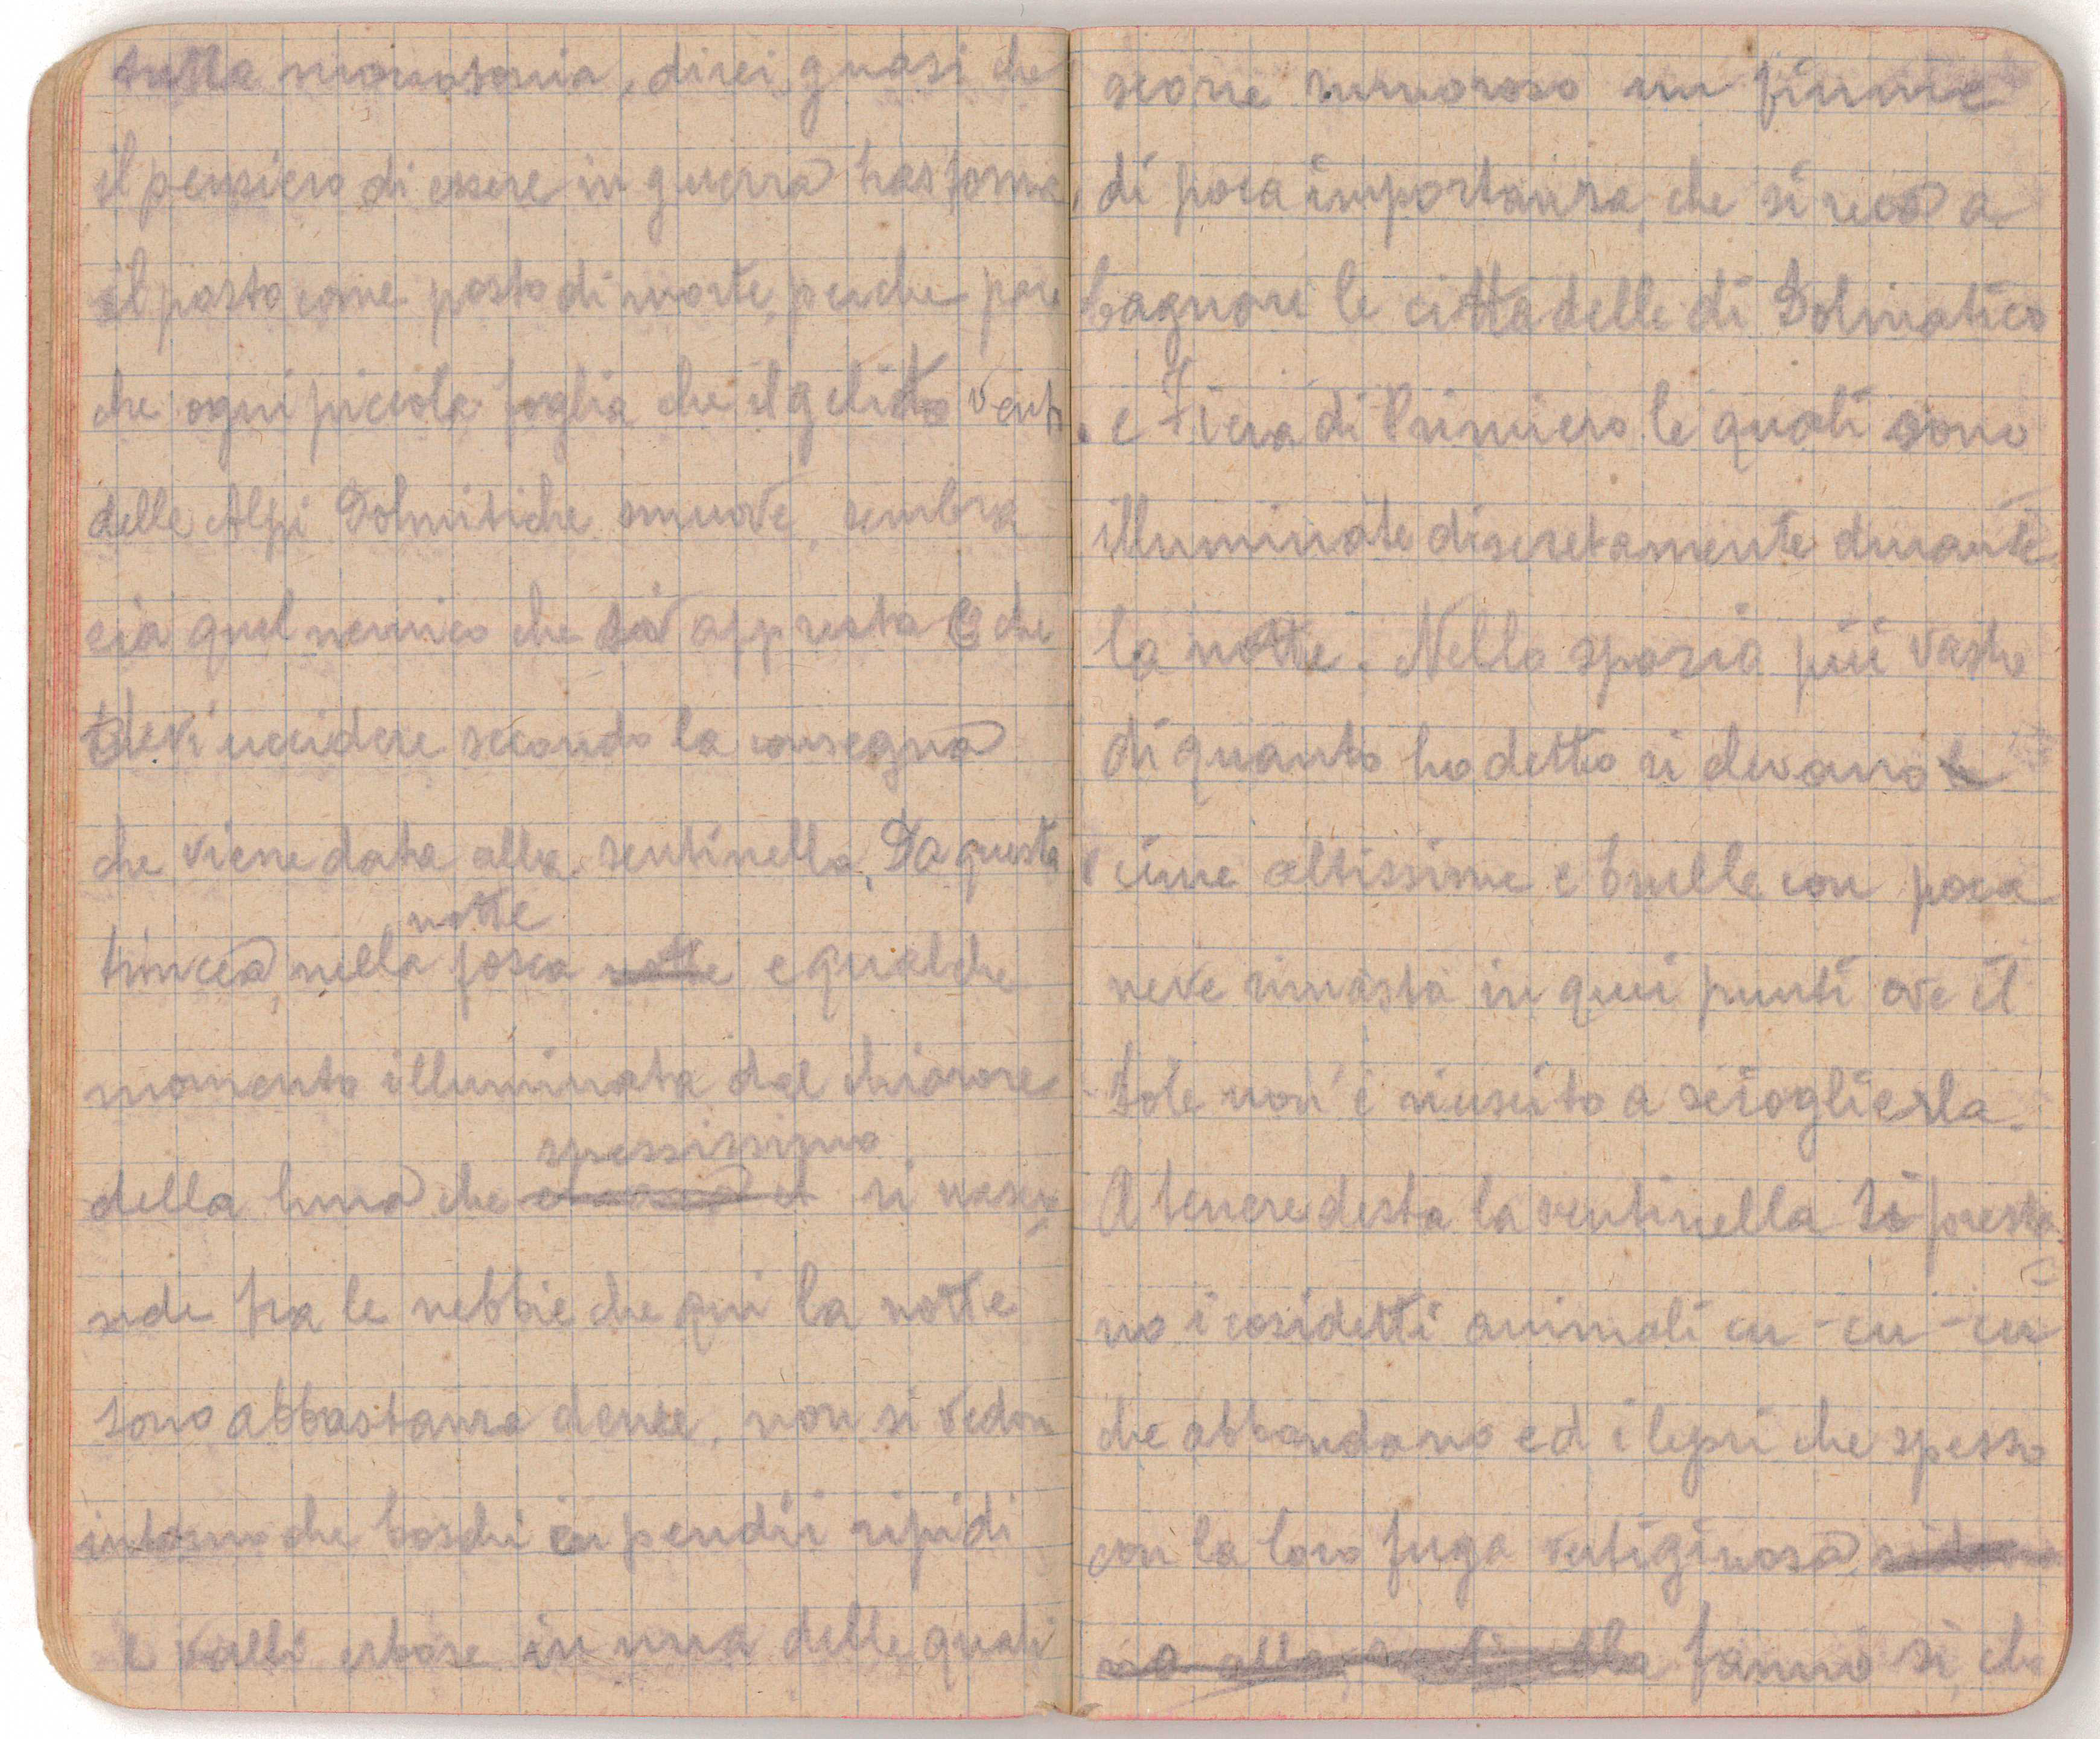 tutta monotonia, direi quasi che
il pensiero di essere in guerra trasforma
il posto come posto di morte, perche pare
che ogni piccola foglia che il gelido vento
delle Alpi Dolmitiche smuove, sembra
sia quel nemico che si appresta e che
devi uccidere secondo la consegna
che viene data alla sentinella. Da questa
notte
trincea, nella fosca notte e qualche
momento illuminata dal chiarore
spessissimo
della luna che si nascon
nde tra le nebbie che qui la notte
sono abbastanza dense, non si vedon
intorno che boschi in pendii ripidi
e valli erbose in una delle quali
scorre rumoroso un fiume
di poca importanza, che si reca a
bagnare le cittadelle di Dolmatico
e Fiera di Primiero le quali sono
illuminate discretamente durante
la notte. Nello spazio più vasto
di quanto ho detto si elevano
cime altissime e brulle con poca
neve rimasta in quei punti ove il
sole non è riuscito a scioglierla.
A tenere desta la sentinella si presta
no i cosidetti animali cu-cu-cu
che abbondano ed i lepri che spesso
con la loro fuga vertiginosa
no alla sentinella fanno si, che